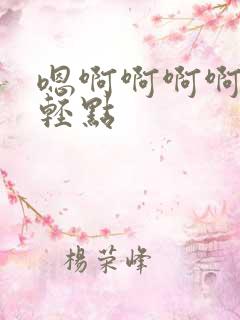 嗯啊啊啊啊
輕點
楊荣峰